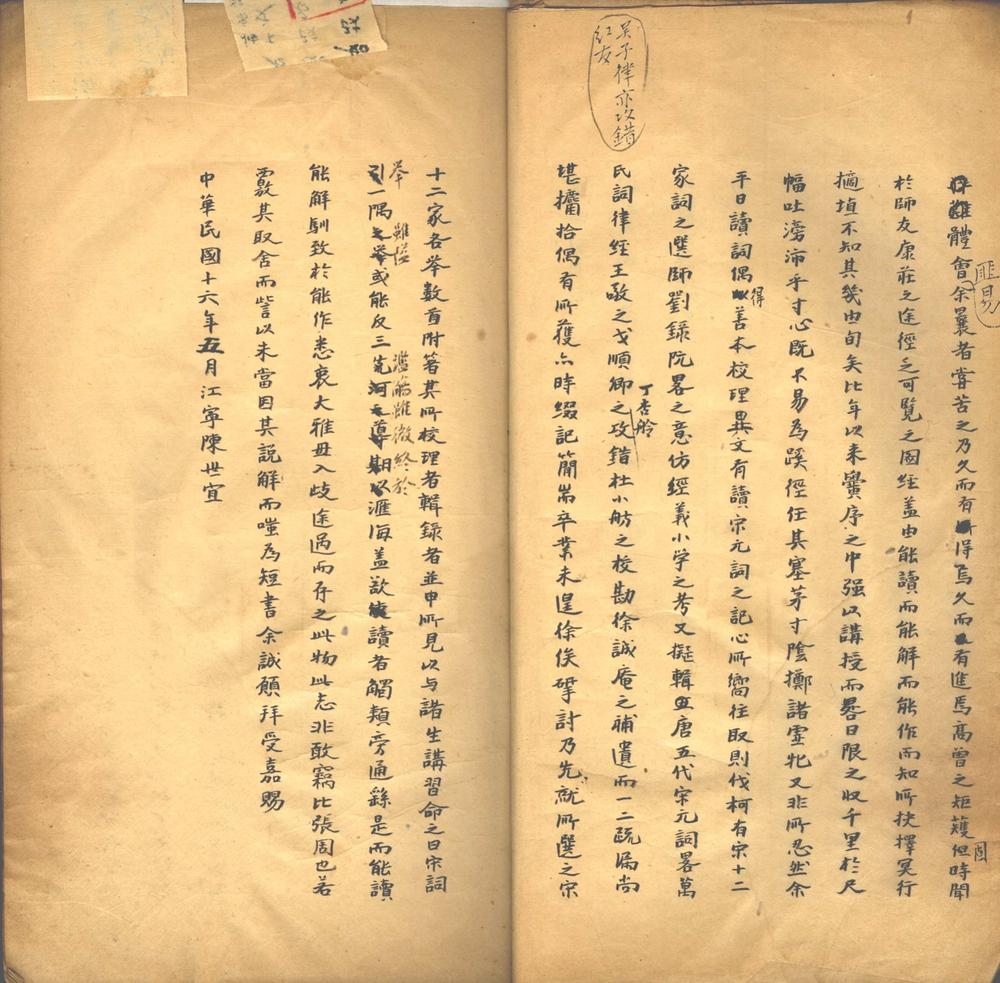 吴子律亦攻錯
紅友
體會余曩者嘗苦之乃久而有得焉久而有進焉高曾之矩矱但時聞
匪易
固
於師友康莊之途徑乏可覽之圖經蓋由能讀而能解而能作而知所抉擇冥行
擿埴不知其幾由旬矣比年以來黌序之中强以講授而晷日限之收千里於尺
幅吐滂沛乎寸心既不易為蹊徑任其塞茅寸陰擲諸靈牝又非所忍然余
平日讀詞偶得善本校理異文有讀宋元詞之記心所嚮往取則伐柯有宋十二
家詞之選師劉錄阮畧之意仿經義小学之考又擬輯唐五代宋元詞畧萬
氏詞律經王敬之戈順卿之攻錯杜小舫之校勘徐誠庵之補遺而一二疏漏尚
丁杏舲
堪攟拾偶有所獲亦時綴記簡耑卒業未遑徐俟揅討乃先就所選之宋
十二家各举數首附箸其所校理者輯録者並申所見以与諸生講習命之曰宋詞
举
引一隅之举或能反三先河之導期以滙海蓋欲使讀者觸類旁通繇是而能讀
雖愆
濫觴雖微終於
能解馴致於能作悉衷大雅毋入歧途過而存之此物此志非敢竊比張周也若
覈其取舍而訾以未當因其説解而嗤為短書余誠願拜受嘉賜
中華民國十六年五月江寧陳世宜